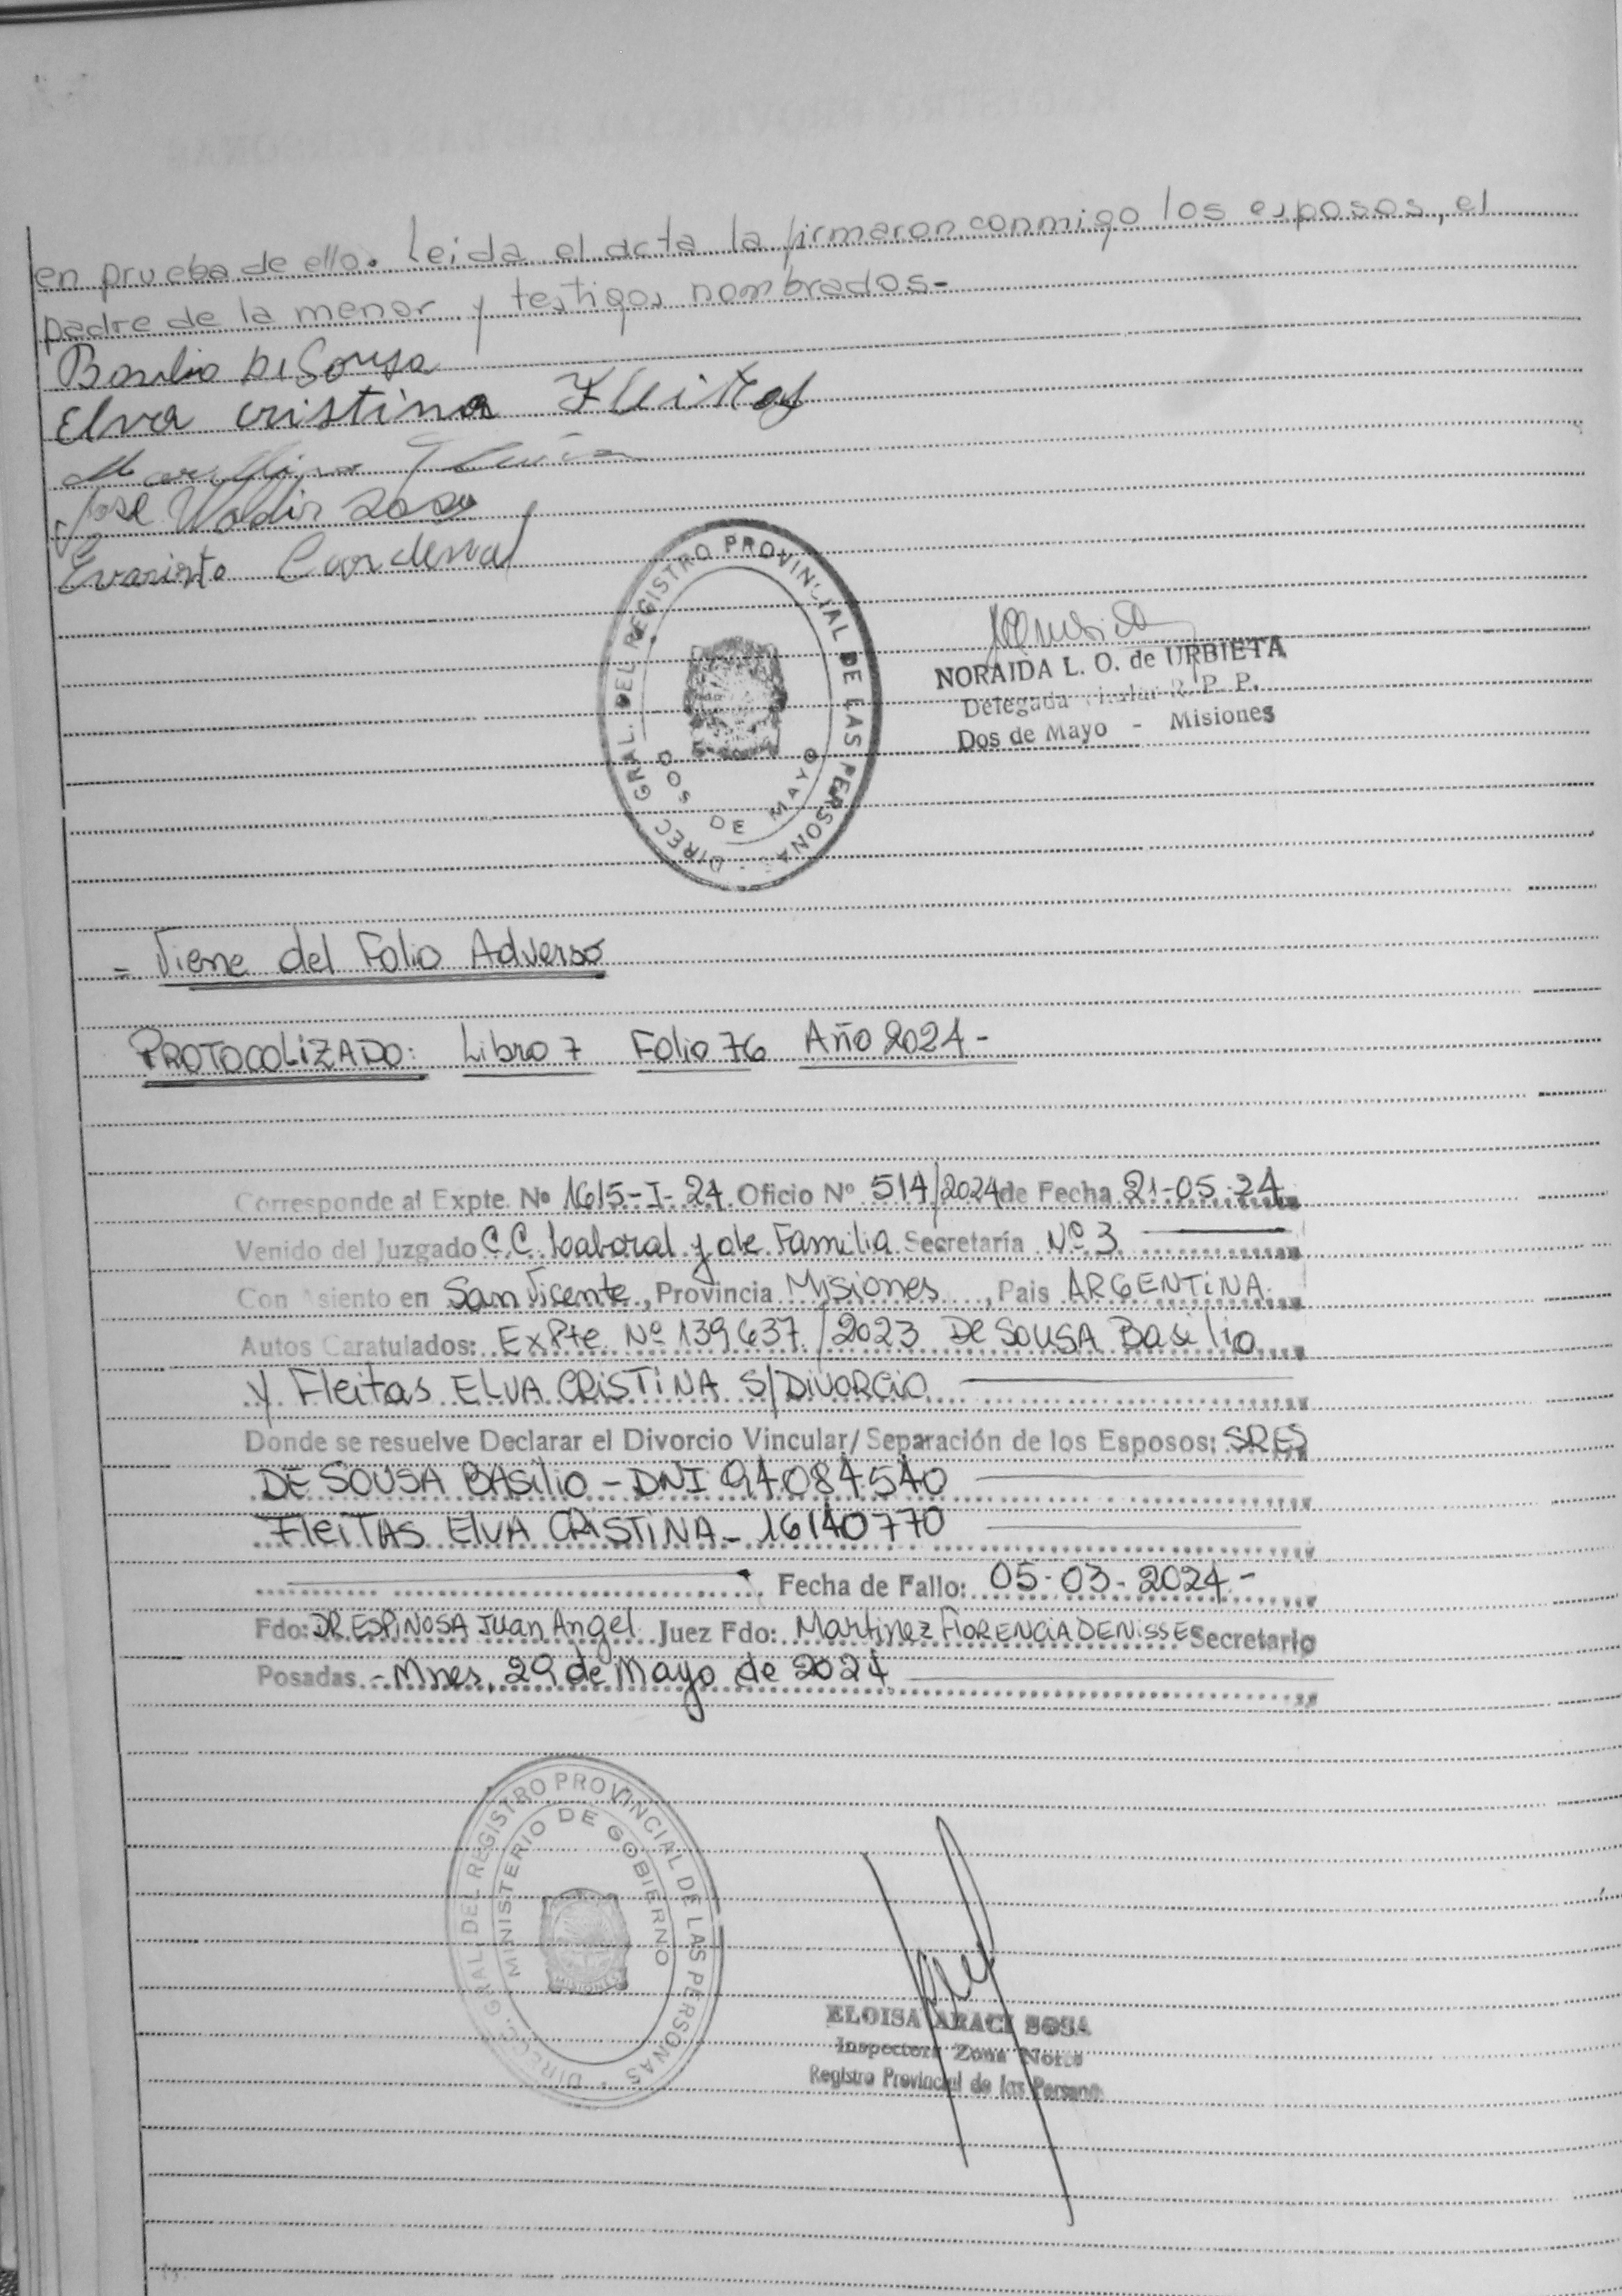 en prueba de ello. Leida el acta la firmaron conmigo los esposos, el
padre de la menor y testigos nombrados-
Basilio De Sousa
Elva Cristina Fleitas
Jose Valdir
Evaristo Cardenal
DIREC GRAL. DEL REGISTRO PROVINCIAL DE LAS PERSONAS
DOS DE MAYO
NORAIDA L. O. de URBIETA
Delegada Titular R. P. P.
Dos de Mayo - Misiones
= Viene del Folio Adverso
PROTOCOLIZADO: Libro 7 Folio 76 Año 2024-
Corresponde al Expte. No 1615-I-24 Oficio No 514/2024 de Fecha 21-05-24
Venido del Juzgado C.C. Laboral y de Familia Secretaría Nº 3
Con Asiento en San Vicente, Provincia Misiones, Pais ARGENTINA
Autos Caratulados: ExPte Nº 139637/2023 De SOUSA Basilio
y Fleitas ELVA CRISTINA S/DIVORCIO
Donde se resuelve Declarar el Divorcio Vincular/Separación de los Esposos: SRES
DE SOUSA BASILIO - DNI 94084540
FLEITAS ELVA CRISTINA - 16140770
Fecha de Fallo: 05-03-2024-
Fdo: DR ESPINOSA Juan Angel Juez Fdo: Martinez FLORENCIA DENISSE Secretario
Posadas - Mnes, 29 de Mayo de 2024
DIREC. GRAL. DEL REGISTRO PROVINCIAL DE LAS PERSONAS
MINISTERIO DE GOBIERNO
MISIONES
ELOISA ARACI SOSA
Inspectora Zona Norte
Registro Provincial de las Personas